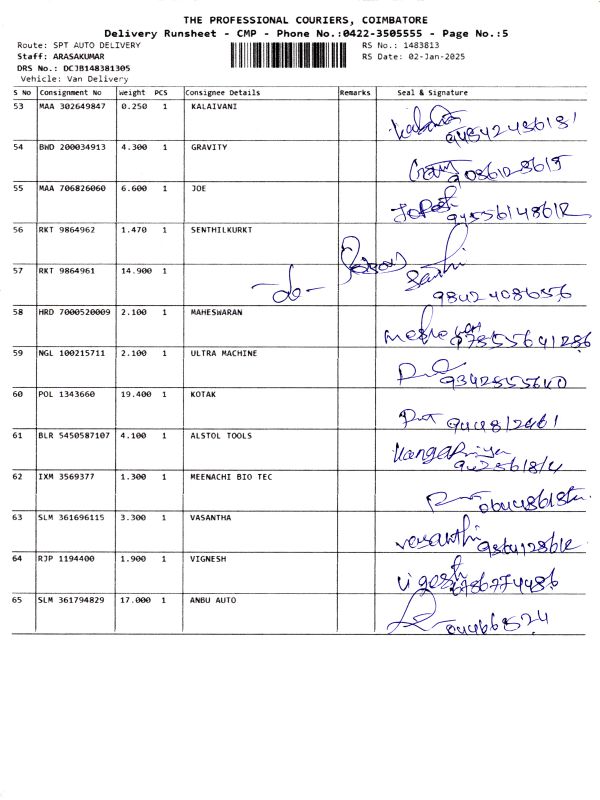 THE PROFESSIONAL COURIERS, COIMBATORE
Delivery Runsheet - CMP - Phone No.:0422-3505555 - Page No.:5
Route: SPT AUTO DELIVERY RS No.: 1483813
Staff: ARASAKUMAR RS Date: 02-Jan-2025
DRS No.: DCJB148381305
Vehicle: Van Delivery
S No Consignment No Weight PCS Consignee Details Remarks Seal & Signature
53 MAA 302649847 0.250 1 KALAIVANI
54 BWD 200034913 4.300 1 GRAVITY
55 MAA 706826060 6.600 1 JOE
56 RKT 9864962 1.470 1 SENTHILKURKT
57 RKT 9864961 14.900 1 -do-
58 HRD 7000520009 2.100 1 MAHESWARAN
59 NGL 100215711 2.100 1 ULTRA MACHINE
60 POL 1343660 19.400 1 KOTAK
61 BLR 5450587107 4.100 1 ALSTOL TOOLS
62 IXM 3569377 1.300 1 MEENACHI BIO TEC
63 SLM 361696115 3.300 1 VASANTHA vasanthi
64 RJP 1194400 1.900 1 VIGNESH
65 SLM 361794829 17.000 1 ANBU AUTO